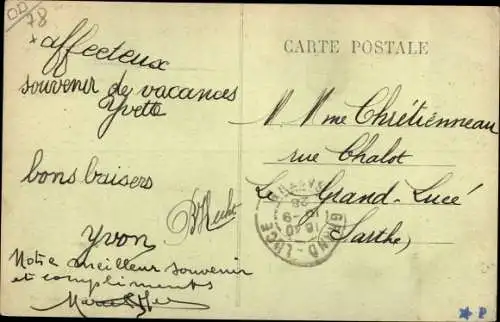 OD
78
affecteux
souvenir de vacances
Yvette
bons baisers
Yvon
Notre meilleur souvenir
et compliments
CARTE POSTALE
M. Mme Chrétienneau
rue Chalot
Le Grand-Lucé
(Sarthe)
GRAND-LUCÉ
SARTHE
16 40
9
28
P